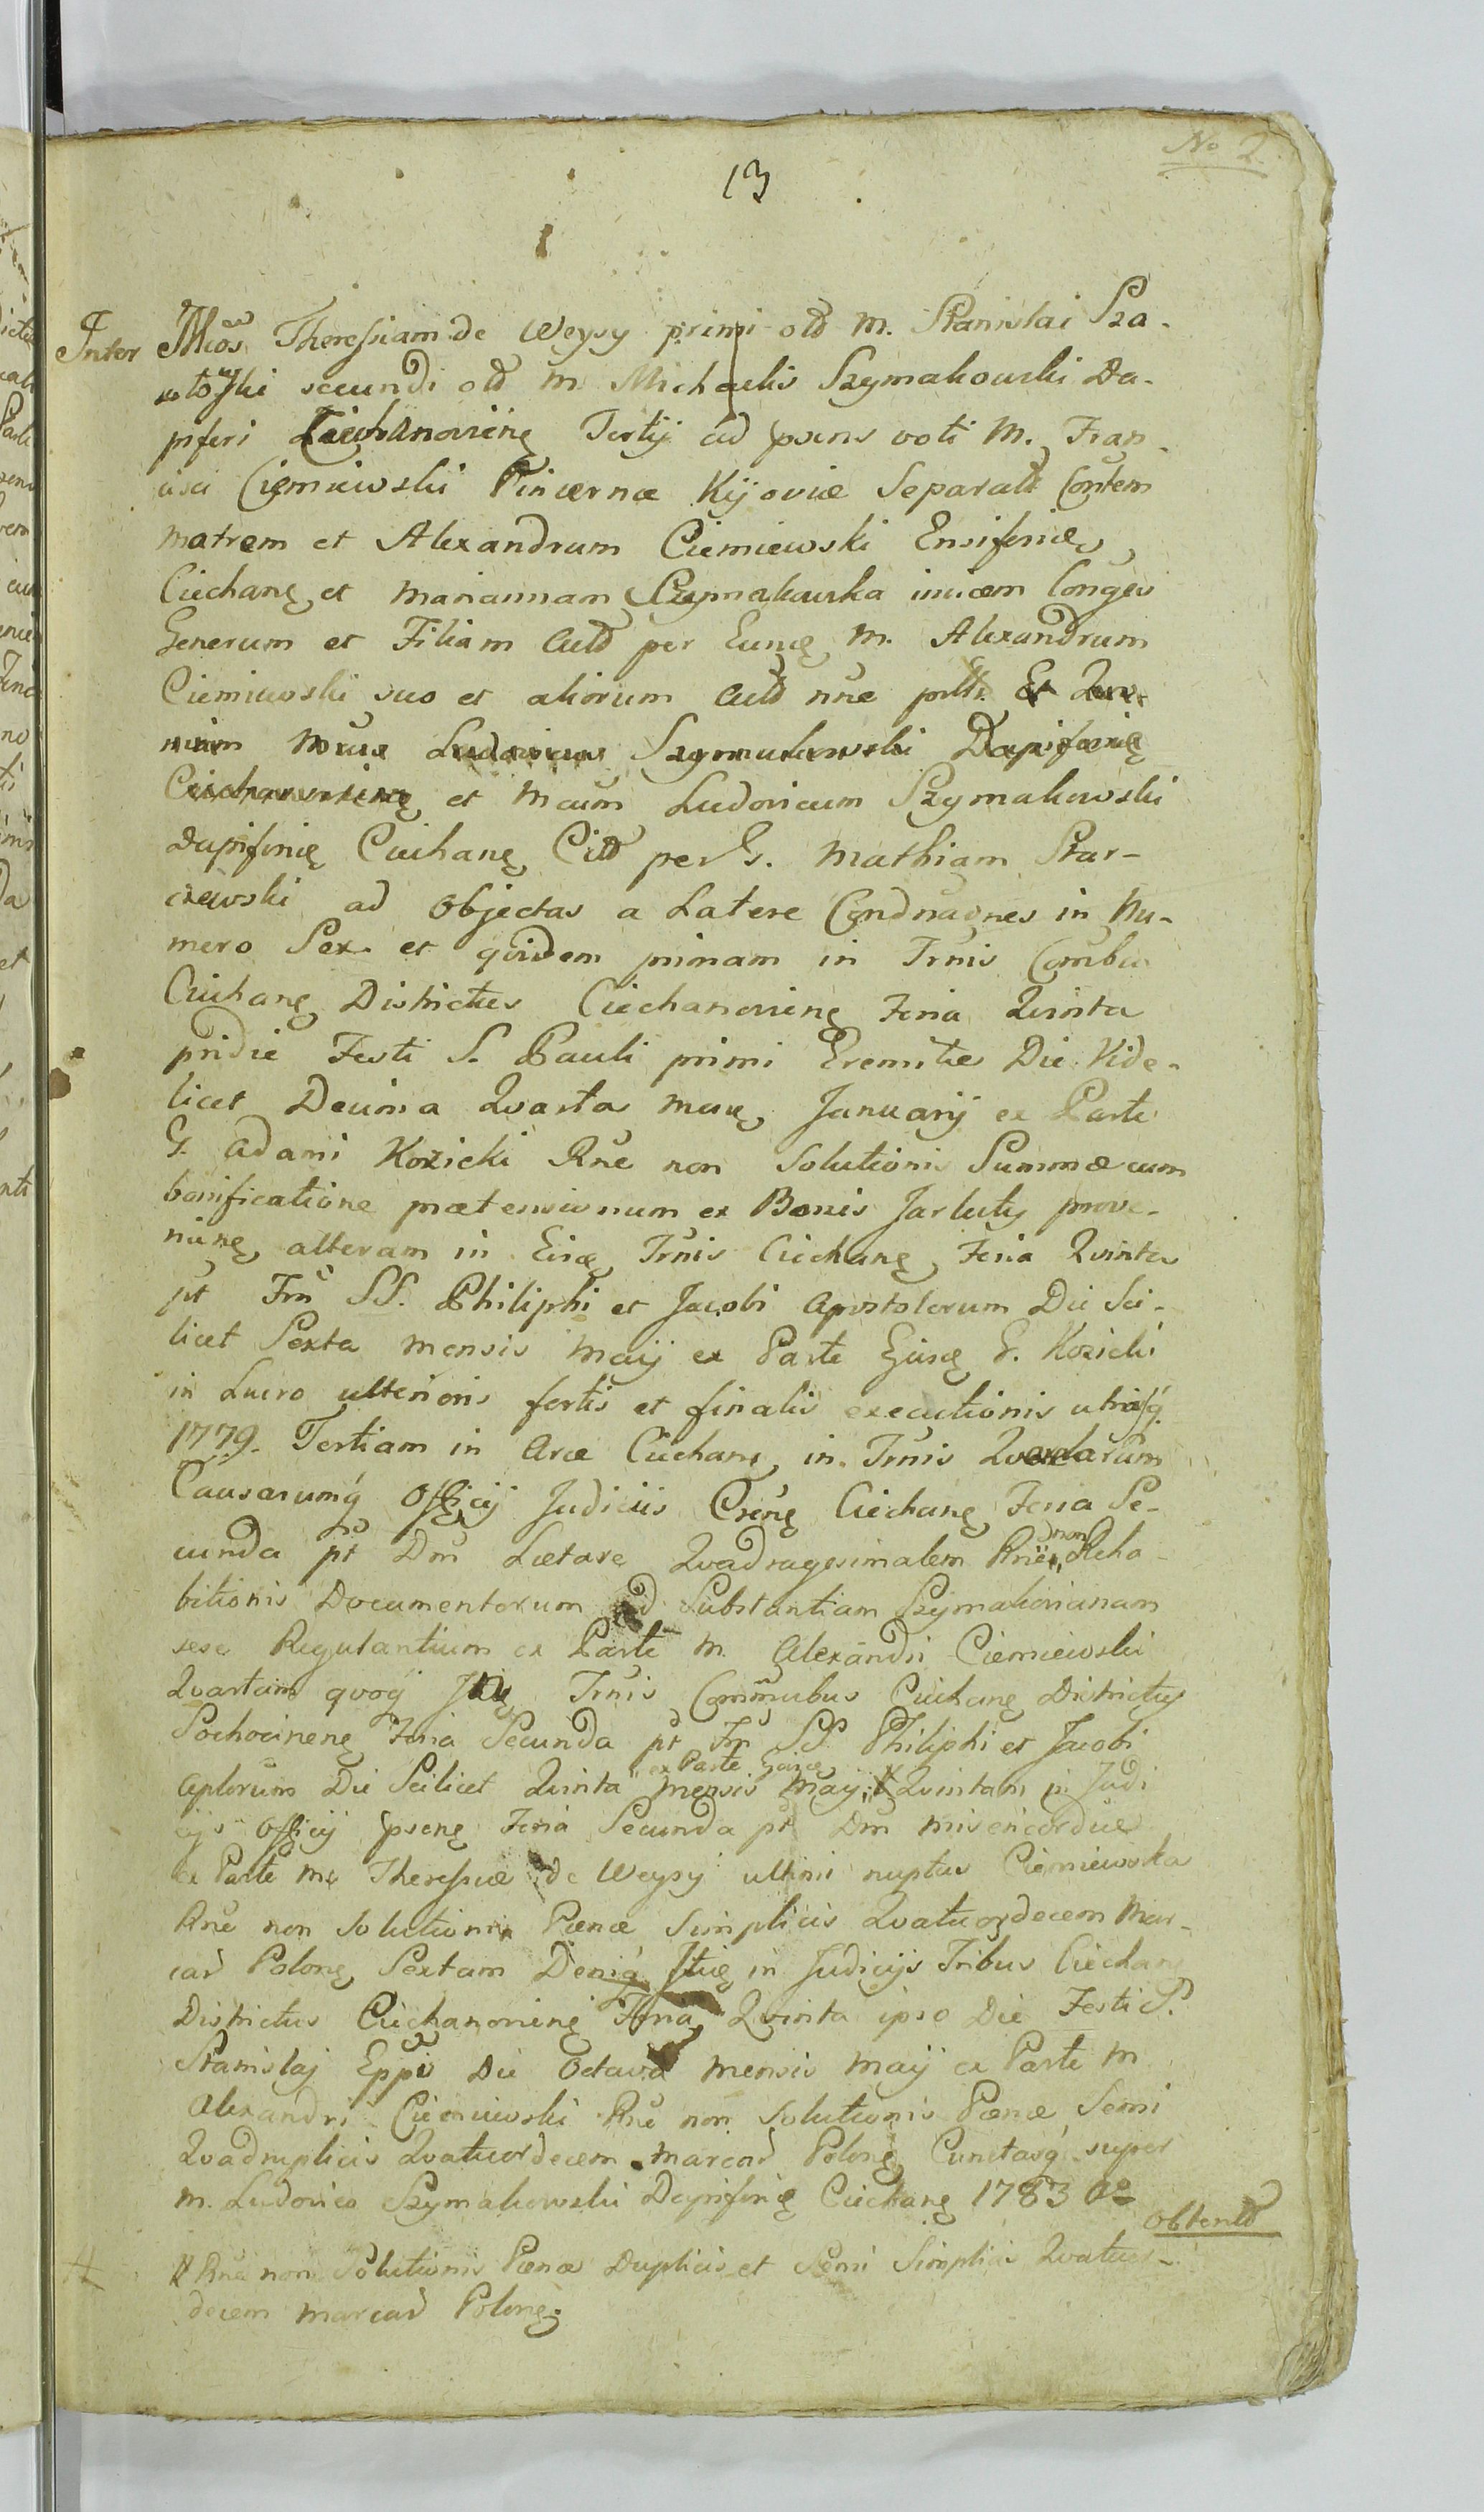 No 2
13
Inter Mcos Theressiam de Weysy primi olđ M. Stanislai Sza-
towski secundi olđ M. Michaelis Szymakowski Da-
piferi Ciechanovieng Tertij ad psens voti M. Fran-
cisci Ciemiewski Pincernæ Kijoviæ Separatæ Contem
matrem et Alexandrum Ciemiewski Ensiferiæ
Ciechang et Mariannam Szymakowska invicem Conges
Generum et Filiam Actđ per Eung M. Alexandrum
Ciemiewski suo et aliorum Actđ nne
Ludovicus Szymakowski Dapiferię
Ciechanovieng et Mcum Ludovicum Szymakowski
Dapiferię Ciechang Citđ per G. Mathiam Star-
czewski ad Objectas a Latere Condnaones in Nu-
mero Sex et qvidem primam in Trnis Combus
Ciechang Districtus Ciechanovieng Feria Qvinta
pridie Festi S. Pauli primi Eremitæ Die Vide-
licet Decima Qvarta mens Januarij ex Parte
G. Adami Kozicki Rne non Solutionis Summæ cum
bonificatione prætensionum ex Bonis Jarluty prove-
nieng, alteram in Eisg Trnis Ciechang Feria Qvinta
pt Frn SS. Philiphi et Jacobi Apostolorum Die Sci-
licet Sexta Mensis Maij ex Parte Ejusg G. Kozicki
in Lucro ulterioris fortis et finalis executionis utrasq
1779. Tertiam in Arce Ciechang in Trnis Qværelarum
Causarumq Officij Judiciis Creng Ciechang Feria Se-
cunda pt Dm Lætare Qvadragesimalem Rne non Reha-
bitionis Documentorum ad Substantiam Szymakovianam
sese Regulantium ex Parte M. Alexandri Ciemiewski
Qvartam qvoq Trnis Commubus Ciechang Districtus
Sochocineng Feria Secunda pt Frn SS. Philiphi et Jacobi
Aplorum Die Scilicet Qvinta Mensis May ex Parte Ejusg Qvintam in Judi
cijs Officij pseng Feria Secunda pt Dm Misericordiæ
ex Parte Mæ Theressiæ de Weysy ultimi nuptus Ciemiewska
Rne non Solutionis Pænæ Simplicis Qvatuordecem Mar-
car Polong Sextam Deniq in Judicijs Tribus Ciechang
Districtus Ciechanovieng Feria Qvinta ipso Die Festi S.
Stanislaj Eppi Die Octava Mensis Maij ex Parte M
Alexandri Ciemiewski Rne non Solutionis Pænæ Semi
Qvadruplicis Qvatuordecem Marcar Polong Cunctasq super
M. Ludovico Szymakowski Dapiferię Ciechang 1783 Ao
obtentđ
# Rne non Solutionis Pænæ Duplicis et Semi Simplicis Qvatuor-
decem Marcar Polong.